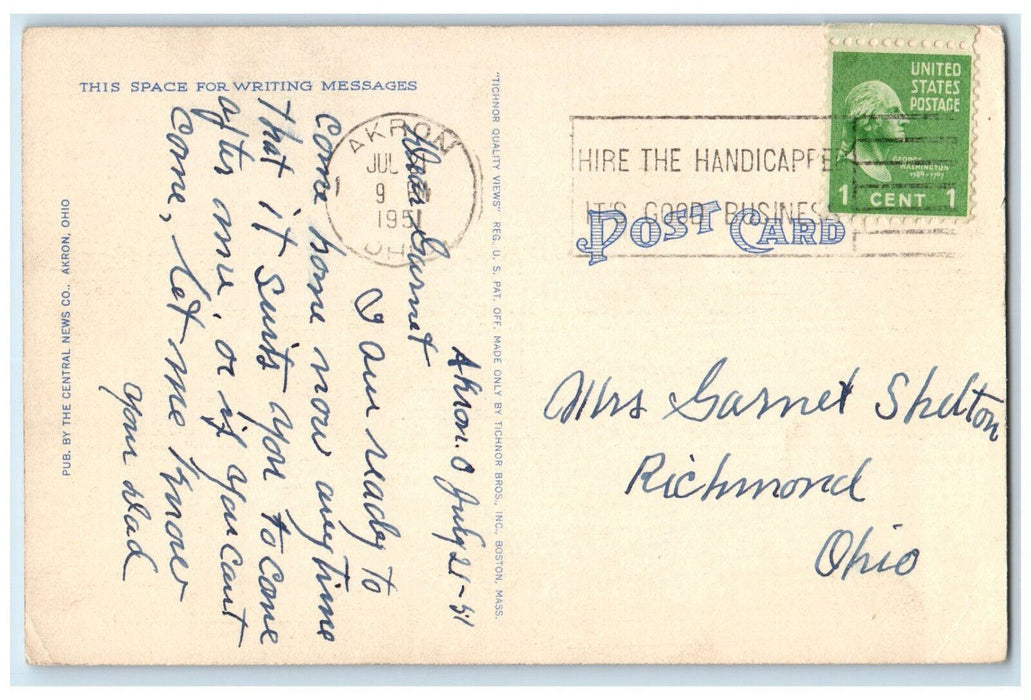 THIS SPACE FOR WRITING MESSAGES
Akron. O July 21-51
Dear Garnet
I am ready to
come home now anytime
that it suits you to come
after me, or if you cant
come, let me know
your dad
PUB. BY THE CENTRAL NEWS CO., AKRON, OHIO
"TICHNOR QUALITY VIEWS" REG. U. S. PAT. OFF. MADE ONLY BY TICHNOR BROS., INC., BOSTON, MASS.
AKRON
JUL
9
1951
OHIO
HIRE THE HANDICAPPED
IT'S GOOD BUSINESS
UNITED
STATES
POSTAGE
GEORGE
WASHINGTON
1789-1797
1 CENT 1
POST CARD
Mrs Garnet Shelton
Richmond
Ohio